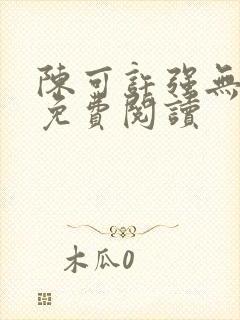 陳可許強無
免費閱讀
木瓜0